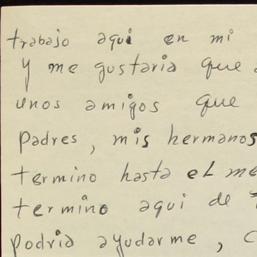 trabajo aqui en mi
y me gustaria que
unos amigos que
padres, mis hermanos
termino hasta el me
termino aqui de
podria ayudarme, c